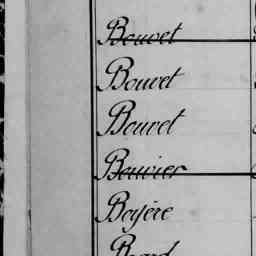 Bouvet
Bouvet
Bouvet
Bouvier
Boyère